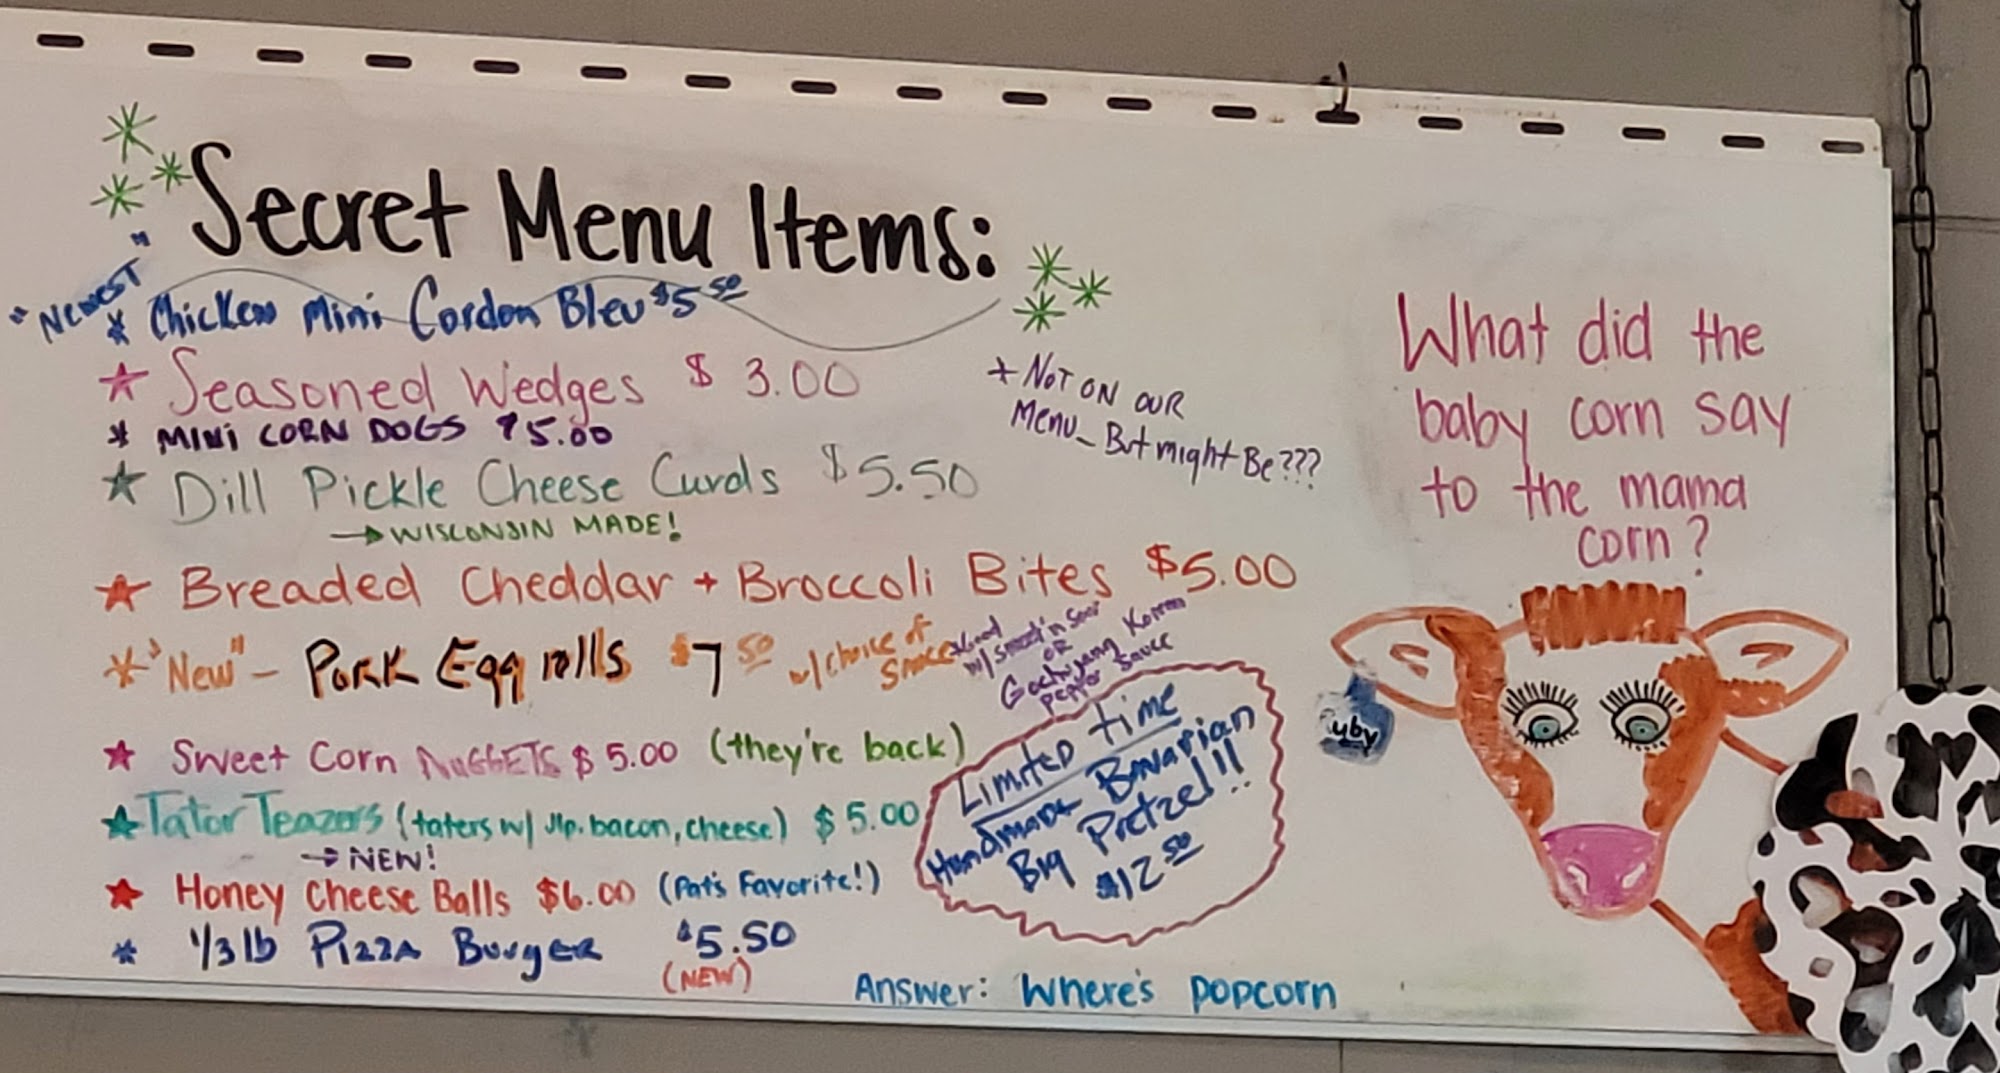 Secret Menu Items:
"Newest"
* Chicken Mini Cordon Bleu $5 50
☆ Seasoned Wedges $ 3.00
* MINI CORN DOGS $5.00
* NOT ON OUR
Menu_ But might Be???
☆ Dill Pickle Cheese Curds $5.50
→ WISCONSIN MADE!
☆ Breaded Cheddar + Broccoli Bites $5.00
* "New" - Pork Egg rolls $7 50 w/ choice of
sauce
*Good
w/ Sweet'n Sour
OR
Gochujang Korean
pepper Sauce
★ Sweet Corn NuGGETS $5.00 (they're back)
★ Tator Teazors (taters w/ Jlp. bacon, cheese) $5.00
→ NEW!
★ Honey Cheese Balls $6.00 (Pat's Favorite!)
* 1/3 lb Pizza Burger $5.50
(NEW)
Limited Time
Handmade Bavarian
Big Pretzel!!
$12 50
What did the
baby corn say
to the mama
corn?
uby
Answer: Where's popcorn